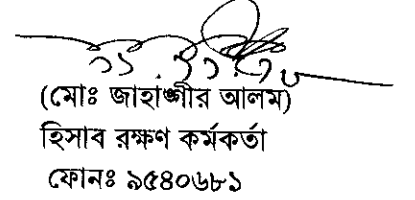 (মোঃ জাহাঙ্গীর আলম)
হিসাব রক্ষণ কর্মকর্তা
ফোনঃ ৯৫৪০৬৮১